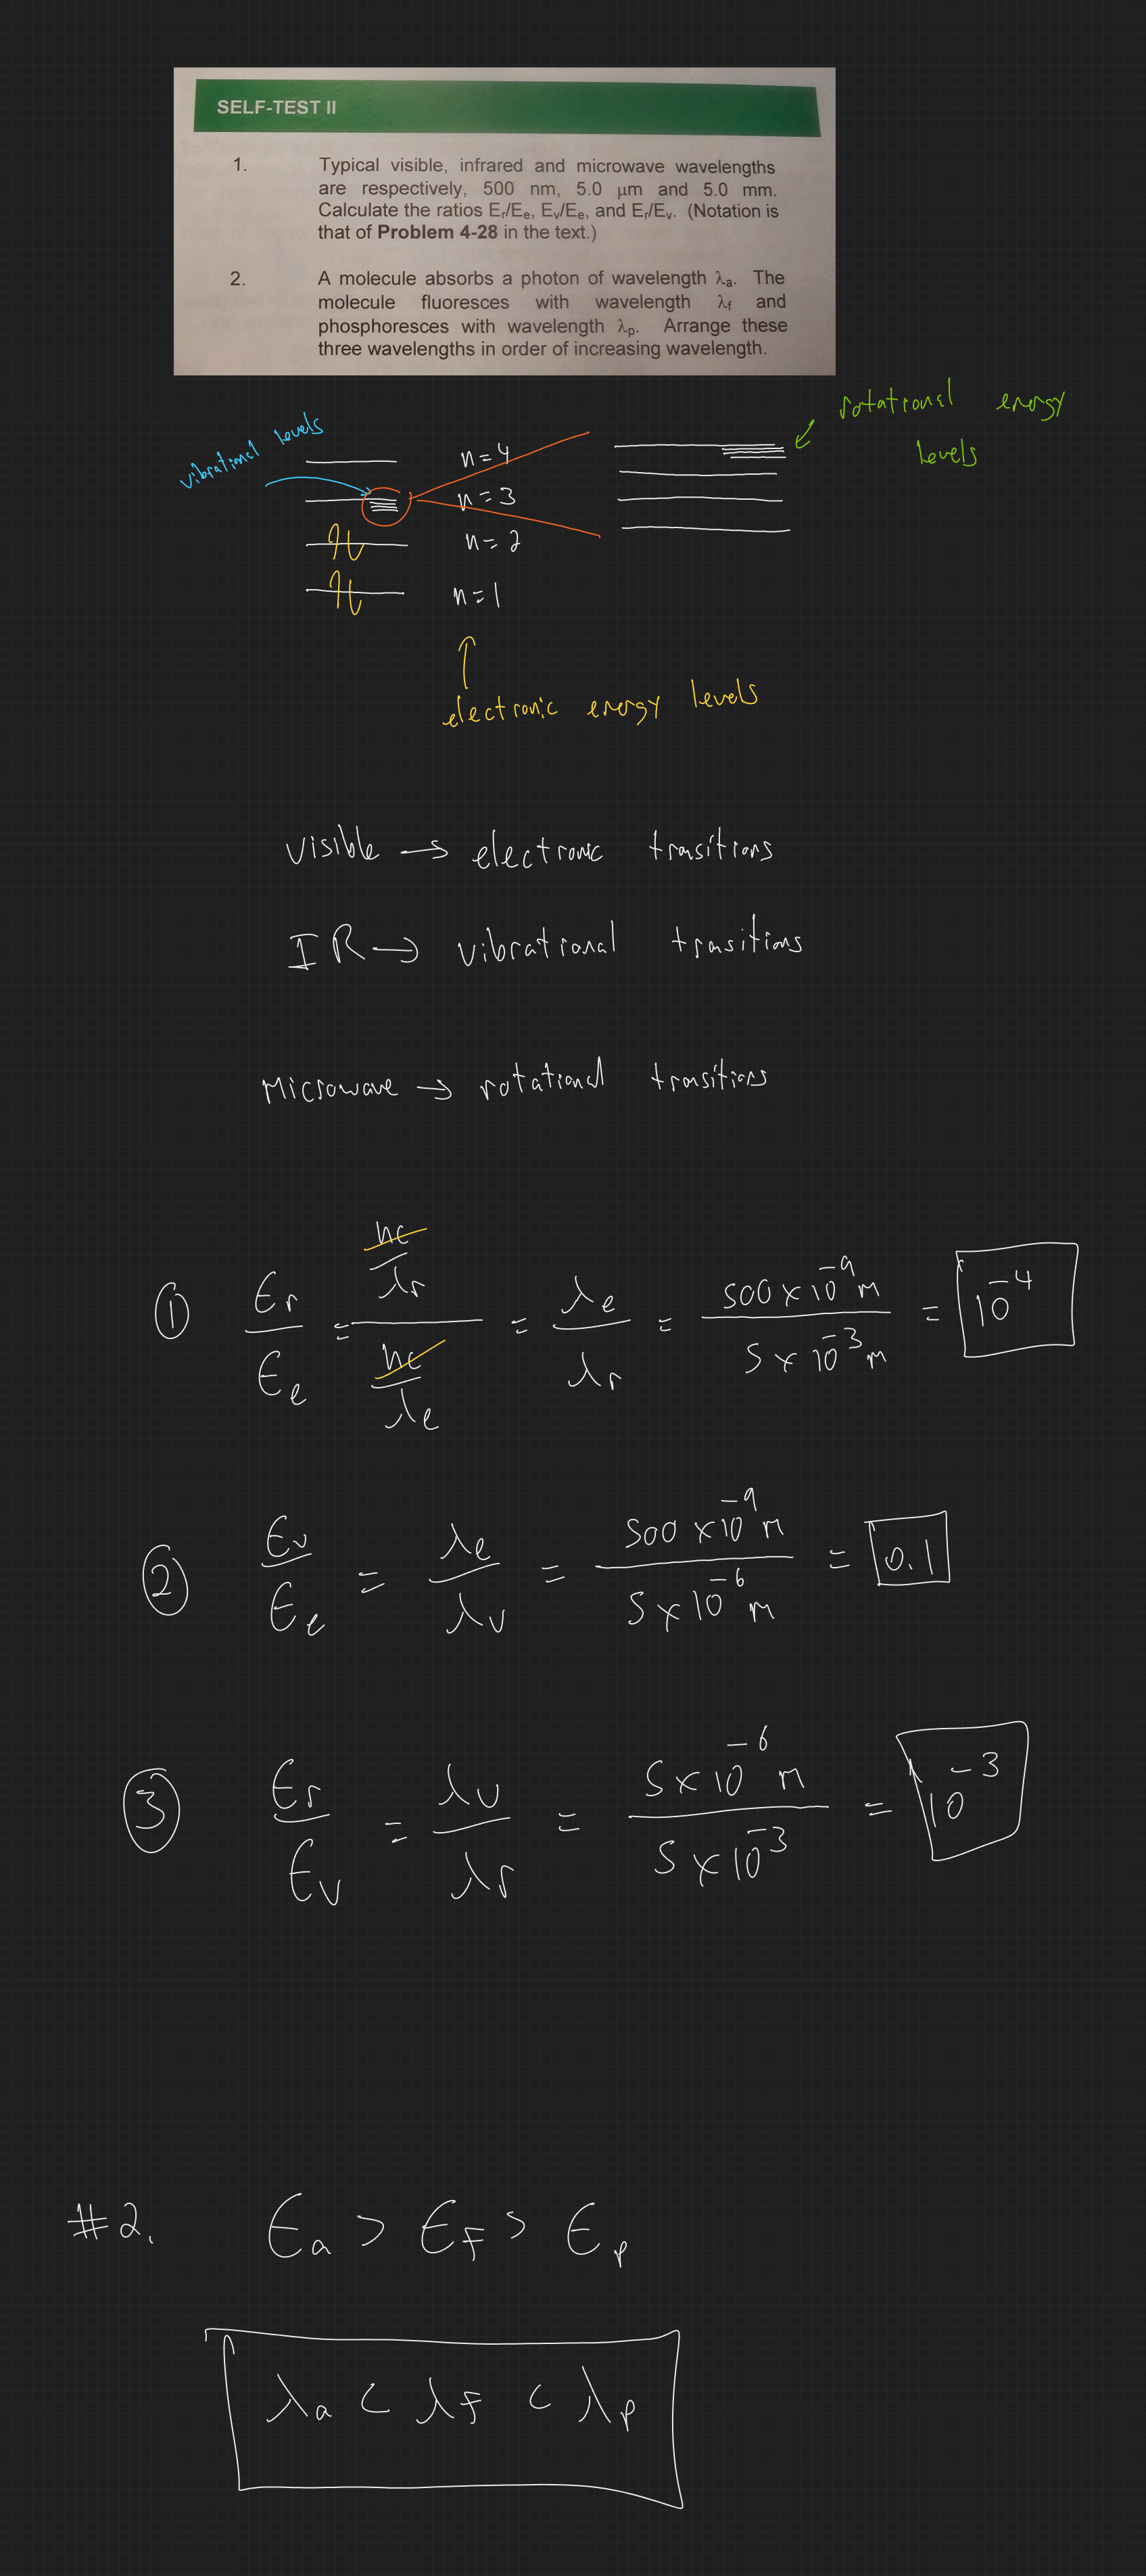 SELF-TEST II
1. Typical visible, infrared and microwave wavelengths
are respectively, 500 nm, 5.0 μm and 5.0 mm.
Calculate the ratios Eᵣ/Eₑ, Eᵥ/Eₑ, and Eᵣ/Eᵥ. (Notation is
that of Problem 4-28 in the text.)
2. A molecule absorbs a photon of wavelength λₐ. The
molecule fluoresces with wavelength λf and
phosphoresces with wavelength λₚ. Arrange these
three wavelengths in order of increasing wavelength.
rotational energy
levels
vibrational levels
n=4
n=3
n=2
n=1
electronic energy levels
Visible → electronic transitions
IR → vibrational transitions
Microwave → rotational transitions
① Eᵣ/Eₑ = (hc/λᵣ)/(hc/λₑ) = λₑ/λᵣ = 500×10⁻⁹m / 5×10⁻³m = 10⁻⁴
② Eᵥ/Eₑ = λₑ/λᵥ = 500×10⁻⁹m / 5×10⁻⁶m = 0.1
③ Eᵣ/Eᵥ = λᵥ/λᵣ = 5×10⁻⁶m / 5×10⁻³ = 10⁻³
#2. Eₐ > EF > Eₚ
λₐ < λF < λₚ